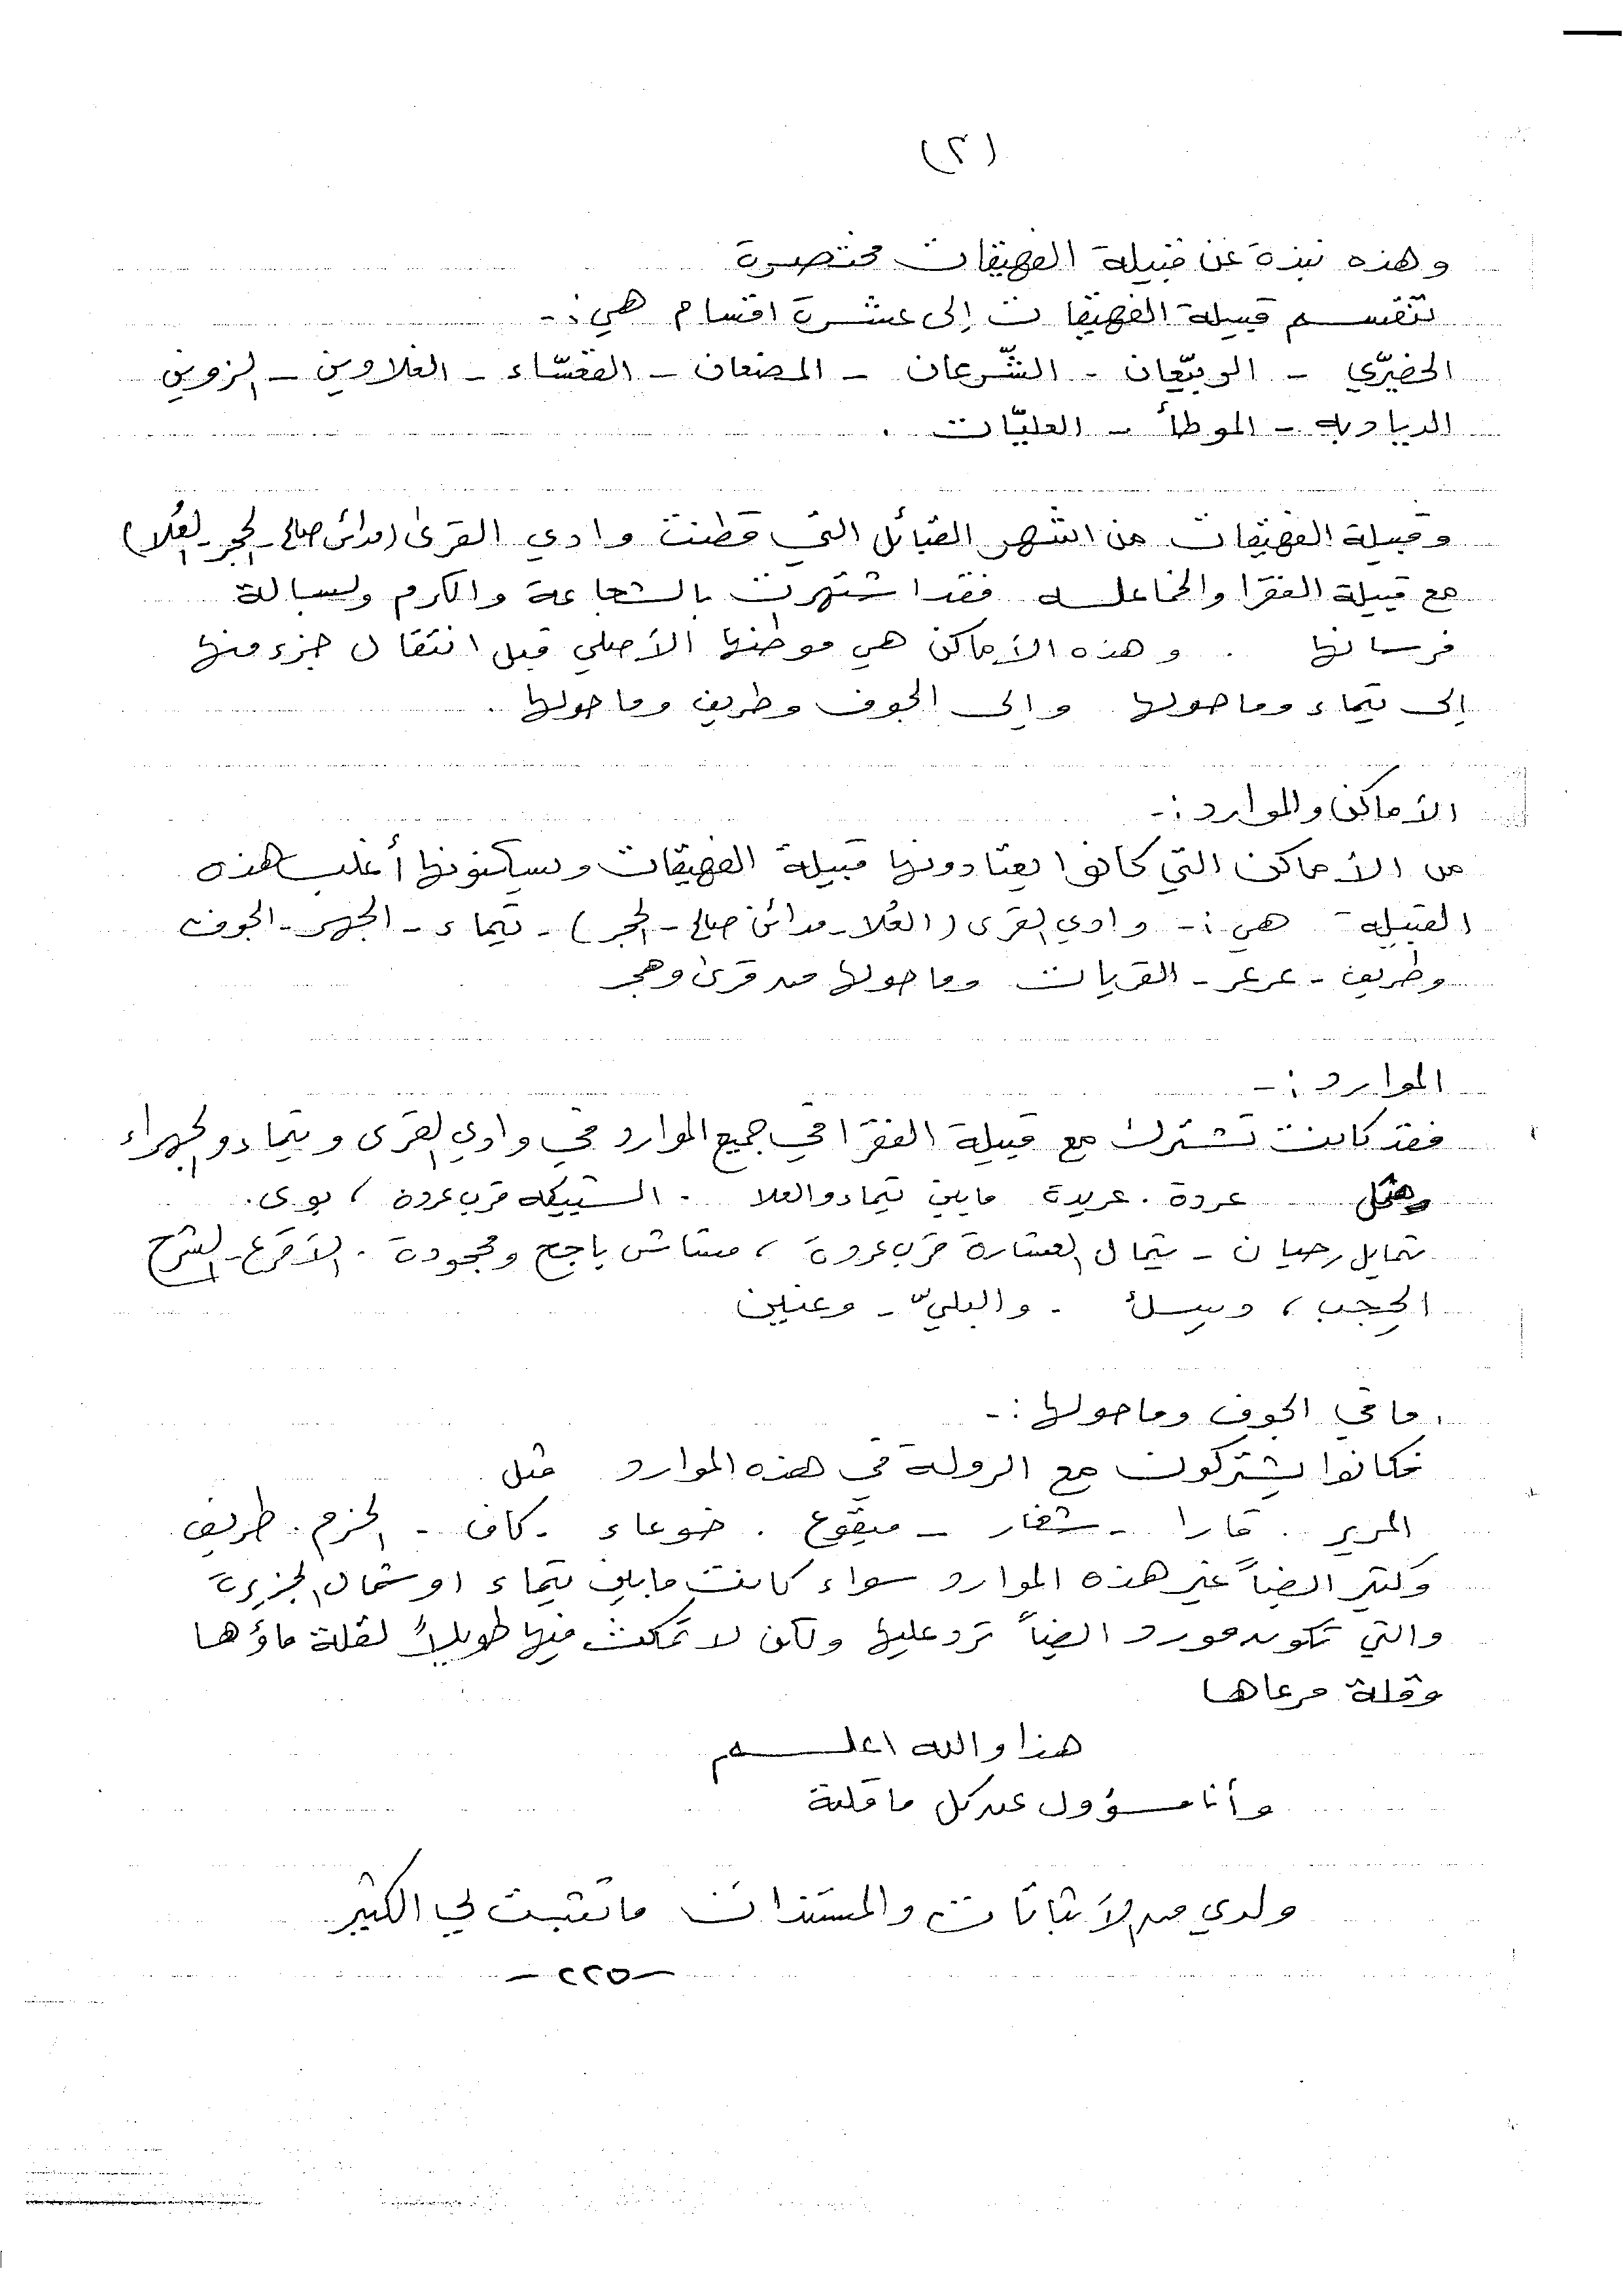 (٢)
وهذه نبذة عن قبيلة الفهيقات مختصرة
تنقسم قبيلة الفهيقات إلى عشرة اقسام هي :-
الخضيري - الوبيّعان - الشّرعان - المضعان - القعسّاء - الفلاوين - الزوين
الديادبه - الموطأ - العليّات .
وقبيلة الفهيقات من اشهر القبائل التي قطنت وادي القرى (مدائن صالح - الحجر - العُلا)
مع قبيلة الفقرا والخماعله فقد اشتهرت بالشجاعة والكرم وبسالة
فرسانها . وهذه الأماكن هي موطنها الأصلي قبل انتقال جزء منها
إلى تيماء وماحولها وإلى الجوف وطريف وماحولها .
الأماكن والموارد :-
من الأماكن التي كانوا يعتادونها قبيلة الفهيقات ويسكنونها أغلب هذه
القبيلة هي :- وادي القرى (العُلا - مدائن صالح - الحجر) - تيماء - الجهر - الجوف
وطريف - عرعر - القريات وماحولها من قرى وهجر
الموارد :-
فقد كانت تشترك مع قبيلة الفقرا في جميع الموارد في وادي القرى وتيماء والجهراء
ومثل عردة . عريدة مابين تيماء والعلا . الستييكه قرب عردة ، بوى .
ثمايل رحيان - ثيمال العشارة قرب عردة ، مشاش باجح ومجودة . الأقرع - الشرح
الحجب ، وسِسلْ . والبليّ - وعنيين
. مافي الجوف وماحولها :-
فكانوا يشتركون مع الرولة في هذه الموارد مثل
المرير . قارا - شغار - ميقوع . خوعاء . كاف - الحزم . طريف
وكثير ايضاً غير هذه الموارد سواء كانت مابين تيماء او شمال الجزيرة
والتي تكون مورد ايضاً ترد عليها ولكن لا تمكث فيها طويلاً لقلة ماؤها
وقلة مرعاها
هذا والله اعلم
وأنا مسؤول عن كل ماقلته
ولدي من الأثباتات والمستندات ماتثبت لي الكثير
- ٢٢٥ -